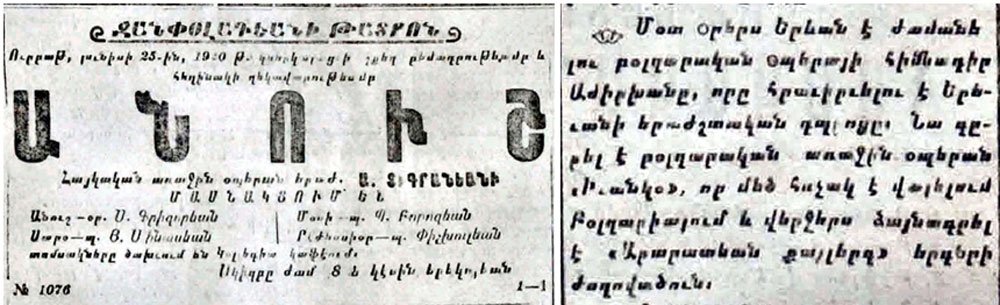 ՋԱՆՓՕԼԱԴԵԱՆԻ ԹԱՏՐՈՆ
Ուրբաթ, յունիսի 25-ին, 1920 թ. շքեղ բեմադրութեամբ և
հեղինակի ղեկավարութեամբ
ԱՆՈՒՇ
Հայկական առաջին օպերան երաժ. Ա. ՏԻԳՐԱՆԵԱՆԻ
ՄԱՍՆԱԿՑՈՒՄ ԵՆ
Անուշ—օր. Ս. Գրիգորեան
Սարօ—պ. Յ. Մինասեան
Մոսի—պ. Պ. Բորոզեան
Րէժիսիօր—պ. Փիչխուլեան
տոմսակները ծախւում են Կոլեգիա կաֆէում.
Սկիզբը ժամ 8 և կէսին երեկոյեան
№ 1076
1—1
Մօտ օրերս Երևան է ժամանե
լու բօլգարական օպերայի հիմնադիր
Ամիրխանը, որը հրաւիրւելու է Երե-
ւանի երաժշտական դպրոցը։ Նա գը-
րել է բօլգարական առաջին օպերան
«Իւանկօ», որ մեծ հռչակ է վայելում
Բօլգարիայում և վերջերս ձայնագրել
է «Արարատեան քայլերգ» երգերի
ժողովածուն։